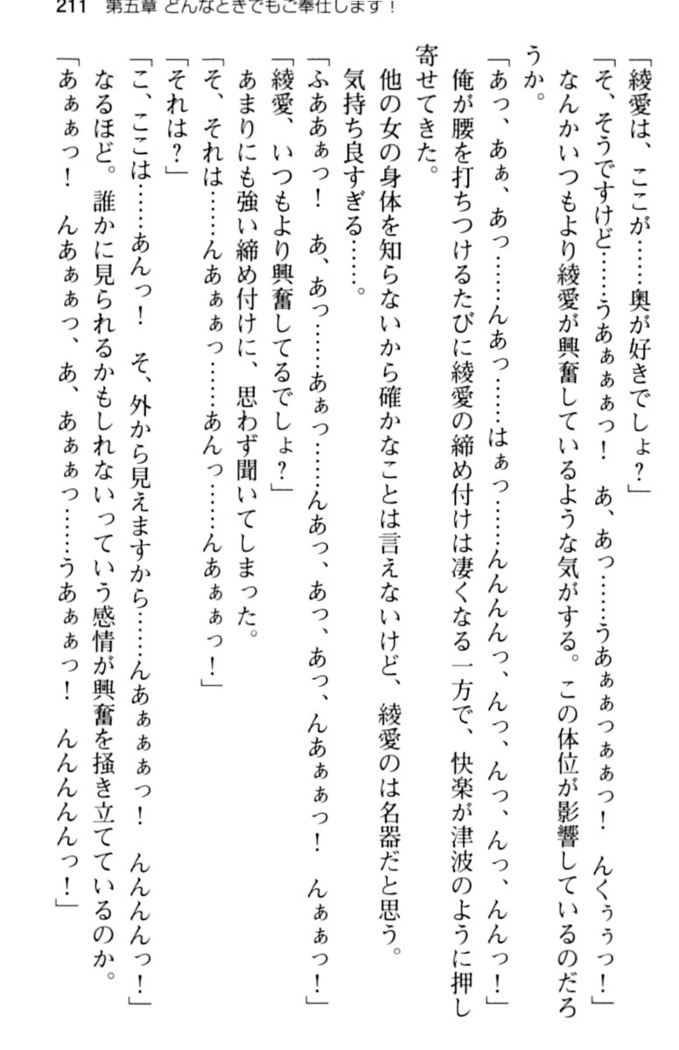 211 第五章 どんなときでもご奉仕します！
「綾愛は、ここが……奥が好きでしょ？」
「そ、そうですけど……うあぁぁぁっ！　あ、あっ……うあぁぁつぁぁっ！　んくぅぅっ！」
なんかいつもより綾愛が興奮しているような気がする。この体位が影響しているのだろ
うか。
「あっ、あぁ、あっ……んあっ……はぁっ……んんんんっ、んっ、んっ、んっ、んんっ！」
俺が腰を打ちつけるたびに綾愛の締め付けは凄くなる一方で、快楽が津波のように押し
寄せてきた。
他の女の身体を知らないから確かなことは言えないけど、綾愛のは名器だと思う。
気持ち良すぎる……。
「ふああぁっ！　あ、あっ……あぁっ……んあっ、あっ、あっ、んあぁぁっ！　んぁぁっ！」
「綾愛、いつもより興奮してるでしょ？」
あまりにも強い締め付けに、思わず聞いてしまった。
「そ、それは……んあぁぁっ……あんっ……んあぁぁっ！」
「それは？」
「こ、ここは……あんっ！　そ、外から見えますから……んあぁぁぁっ！　んんんんっ！」
なるほど。誰かに見られるかもしれないっていう感情が興奮を掻き立てているのか。
「あぁぁっ！　んあぁぁっ、あ、あぁぁっ……うあぁぁっ！　んんんんんっ！」